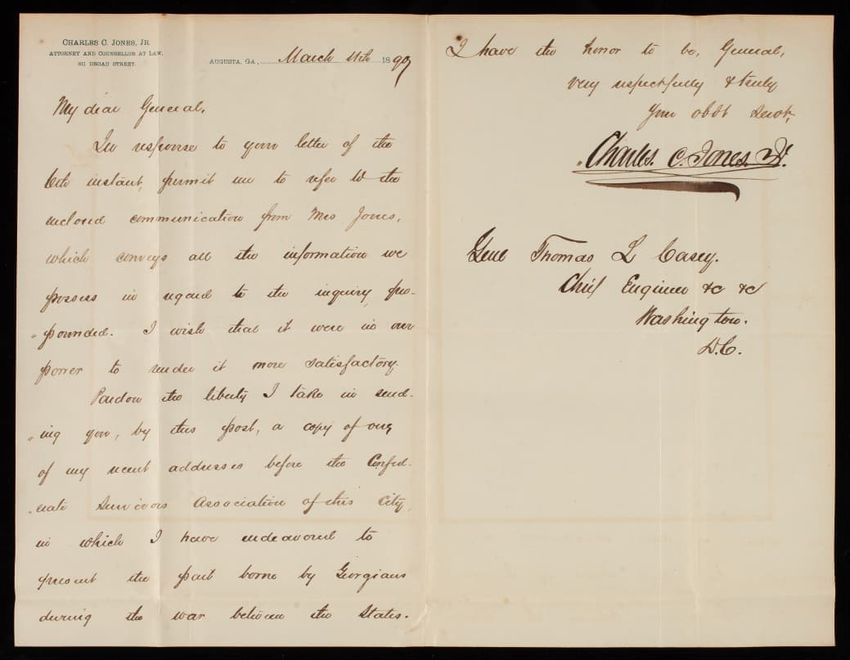 CHARLES C. JONES, JR.
ATTORNEY AND COUNSELLOR AT LAW,
BROAD STREET.
AUGUSTA, GA., March 18
My dear General,
In response to your letter of the
instant, permit me to refer to the
inclosed communication from Mrs Jones,
which conveys all the information we
possess in regard to the inquiry pro-
-pounded. I wish that it were in our
power to render it more satisfactory.
Pardon the liberty I take in send-
-ing you, by this post, a copy of one
of my recent addresses before the Confed-
-erate Survivors Association of this City,
in which I have endeavored to
present the part borne by Georgians
during the war between the States.
I have the honor to be, General,
very respectfully & truly
Your obdt Servt,
Charles. C. Jones. Jr.
Genl Thomas L Casey.
Chief Engineer &c &c
Washington.
D.C.